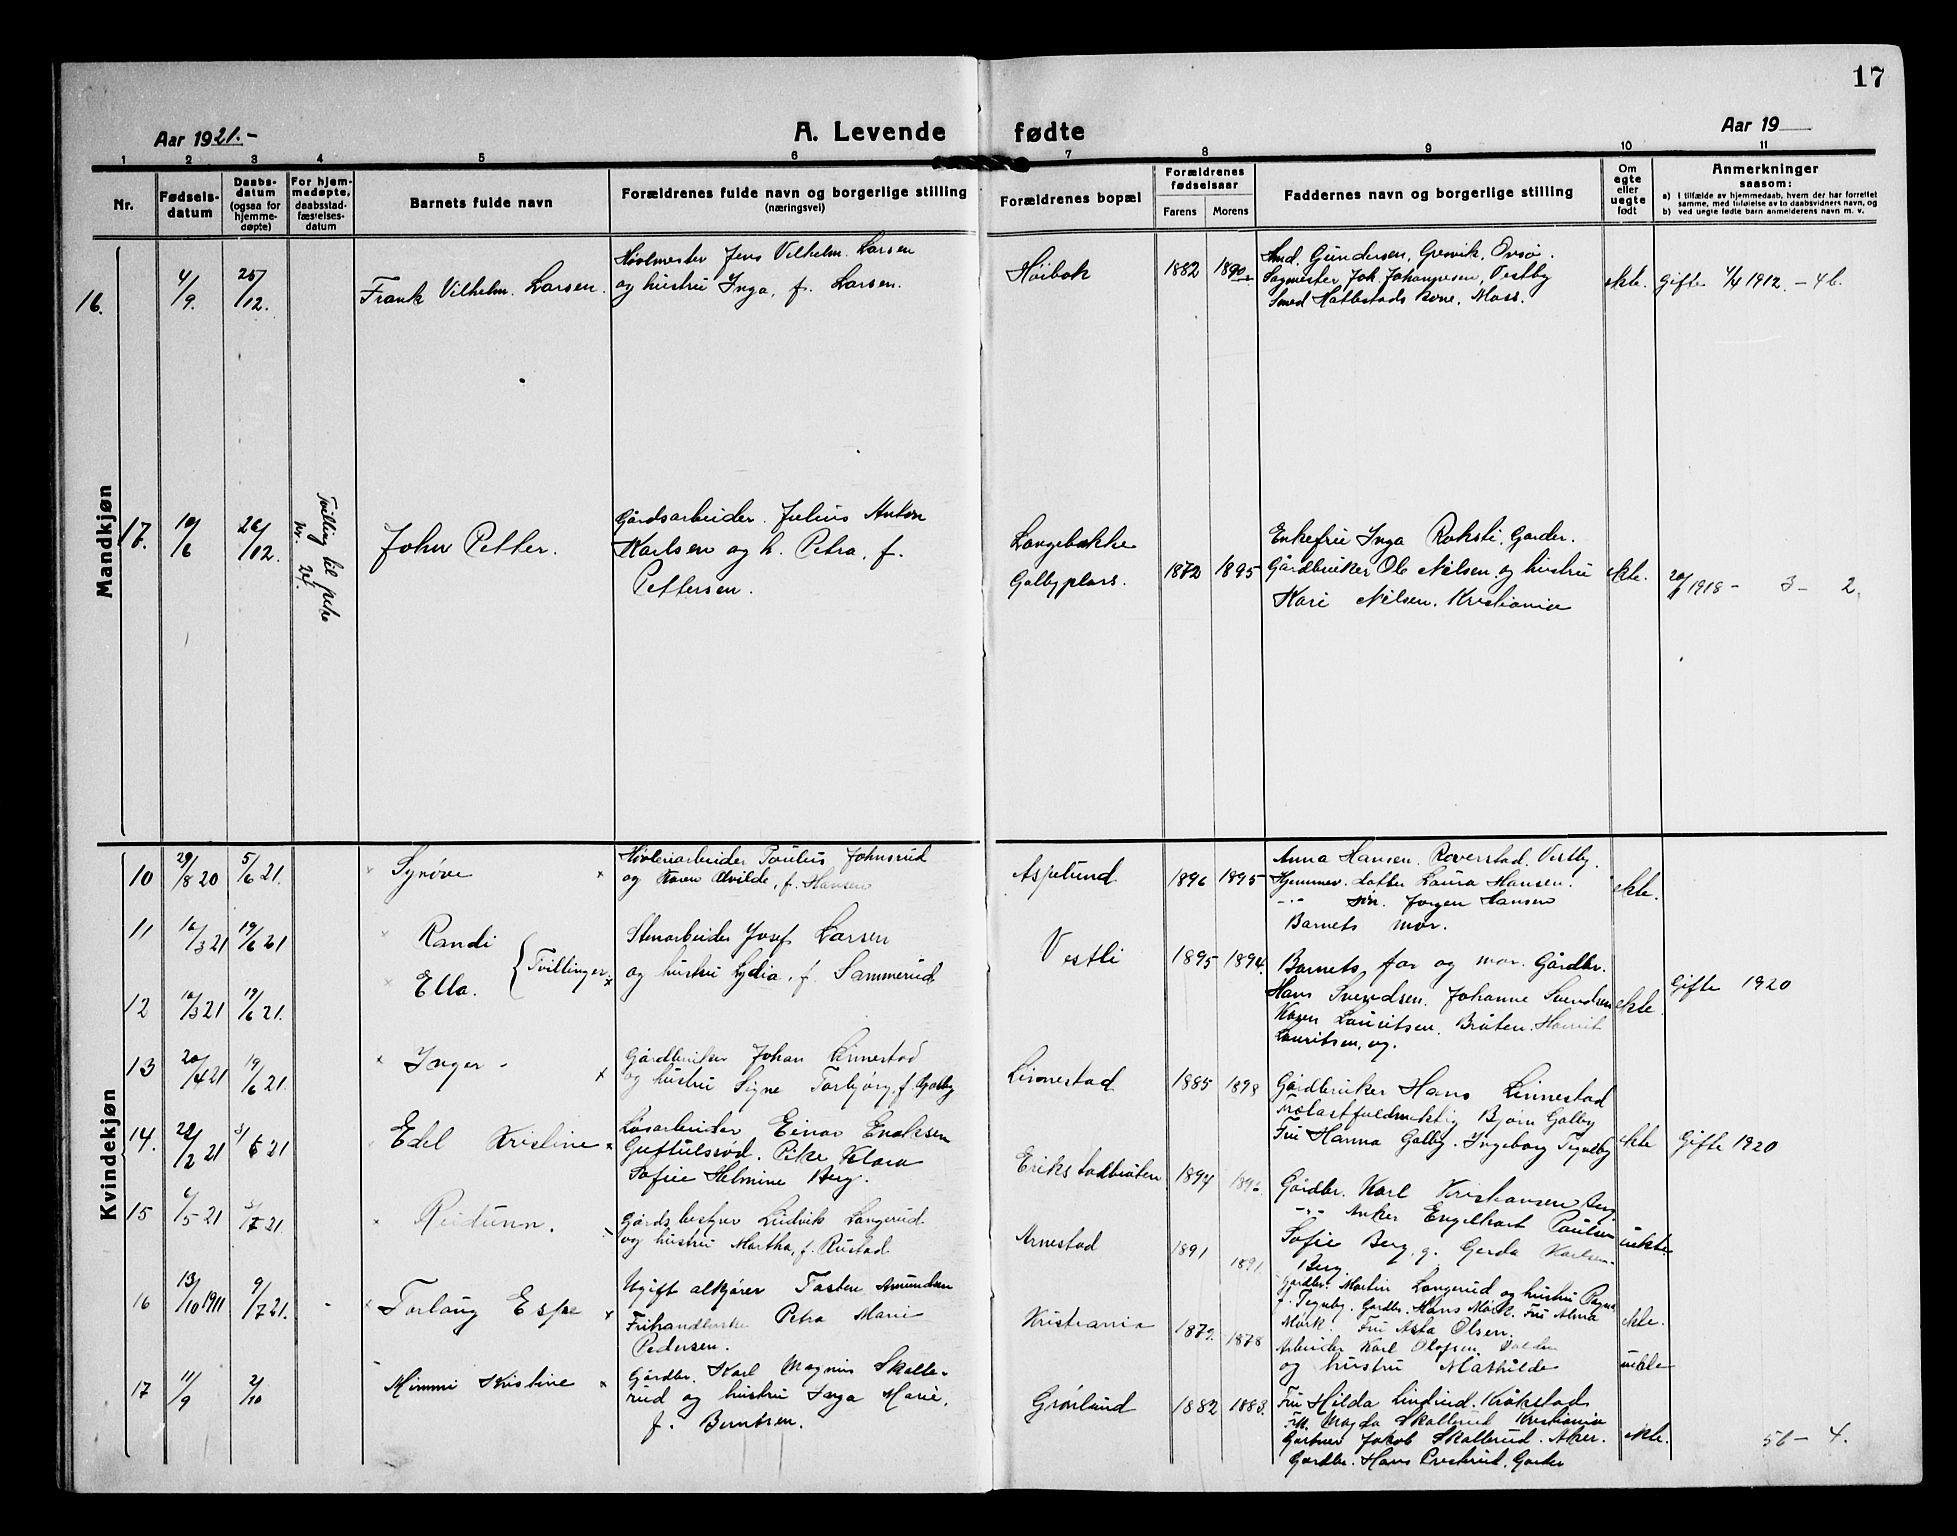 17
Aar 1921.-
A. Levende fødte
Aar 19
1 2 3 4 5 6 7 8 9 10 11
Nr.
Fødsels-
datum
Daabs-
datum
(ogsaa for
hjemme-
døpte)
For hjem-
medøpte,
daabsstad-
fæstelses-
datum
Barnets fulde navn
Forældrenes fulde navn og borgerlige stilling
(næringsvei)
Forældrenes bopæl
Forældrenes
fødselsaar
Farens Morens
Faddernes navn og borgerlige stilling
Om
egte
eller
uegte
født
Anmerkninger
saasom:
a) I tilfælde av hjemmedaab, hvem der har forrettet
samme, med tilføielse av to daabsvidners navn, og
b) ved uegte fødte barn anmelderens navn m. v.
Mandkjøn
16.
4/9.
25/12.
Frank Vilhelm Larsen.
Høvlmester Jens Vilhelm Larsen
og hustru Inga, f. Larsen.
Høibok
1882 1890
And. Gundersen, Gresvik, Onsø.
Sagmester Joh. Johannesen, Vestby
Smed Hattestads kone, Moss.
ekte.
Gifte 4/4 1912. - 4 b.
17.
10/6
26/12.
Tvilling til pike
nr. 24.
John Petter.
Gårdsarbeider Julius Anton
Karlsen og h. Petra, f.
Pettersen.
Langebakke
Galbyplass.
1872 1895
Enkefru Inga Roksti, Garder.
Gårdbruker Ole Nilsen og hustru
Kari Nilsen, Kristiania
ekte.
20/1 1918 - 3 - 2.
Kvindekjøn
10
29/8 20
5/6 21.
Synøve
Høvleriarbeider Paulus Johnsrud
og Karen Alvilde, f. Hansen
Aspelund
1896 1895
Anna Hansen. Raverstad. Vestby.
Hjemmev. datter Laura Hansen.
-"- søn. Jørgen Hansen
Barnets mor.
ekte.
11
16/3 21
19/6 21
Randi
Tvillinger
Stenarbeider Josef Larsen
og hustru Lydia, f. Sammerud
Vestli
1895 1894.
Barnets far og mor. Gårdbr.
Hans Svendsen. Johanne Svendsen
Karen Lauritsen. Bråten. Harriet
Lauritsen, og.
ekte.
Gifte 1920
12
16/3 21
19/6 21.
Ella.
13
20/4 21
19/6 21.
Inger
Gårdbruker Johan Linnestad
og hustru Signe Torbjørg, f. Galby
Linnestad
1885 1898
Gårdbruker Hans Linnestad
Trelastfuldmektig Bjørn Galby
Fru Hanna Galby. Ingeborg Tegneby
ekte
Gifte 1920
14.
22/2 21
3/6 21
Edel Kristine
Løsarbeider Einar Enoksen
Guftulsrød. Pike Klara
Sofie Helmine Berg.
Erikstadbråten
1894
Gårdbr. Karl Kristiansen, Berg.
-"- Anker Engelhart Paulsen
Sofie Berg, g. Gerda Karlsen
Berg.
uekte.
15
6/5 21
3/7 21.
Reidunn.
Gårdsbestyrer Ludvik Langerud
og hustru Martha, f. Rustad.
Arnestad
1891 1891
Gårdbr. Martin Langerud og hustru Ragna
f. Tegneby. Gårdbr. Hans Mørk. Fru Alma
Mørk Fru Asta Olsen.
ekte.
16
13/10 1911
9/7 21.
Torlaug Espe
Ugift aktører Torsten Amundsen
Frihandlerske Petra Marie
Pedersen.
Kristiania
1872. 1878
Arbeider Karl Olofsen
og hustru Mathilde
uekte
17
11/9
2/10
Mimmi Kristine
Gårdbr. Karl Magnus Skalle-
rud og hustru Inga Marie,
f. Berntsen.
Grønlund
1882 1883.
Fru Hilda Lindrud. Kråkstad
Frk. Magda Skallerud Kristiania
Gartner Jakob Skallerud. Aker.
Gårdbr. Hans Presterud, Garder
ekte.
56 - 4.